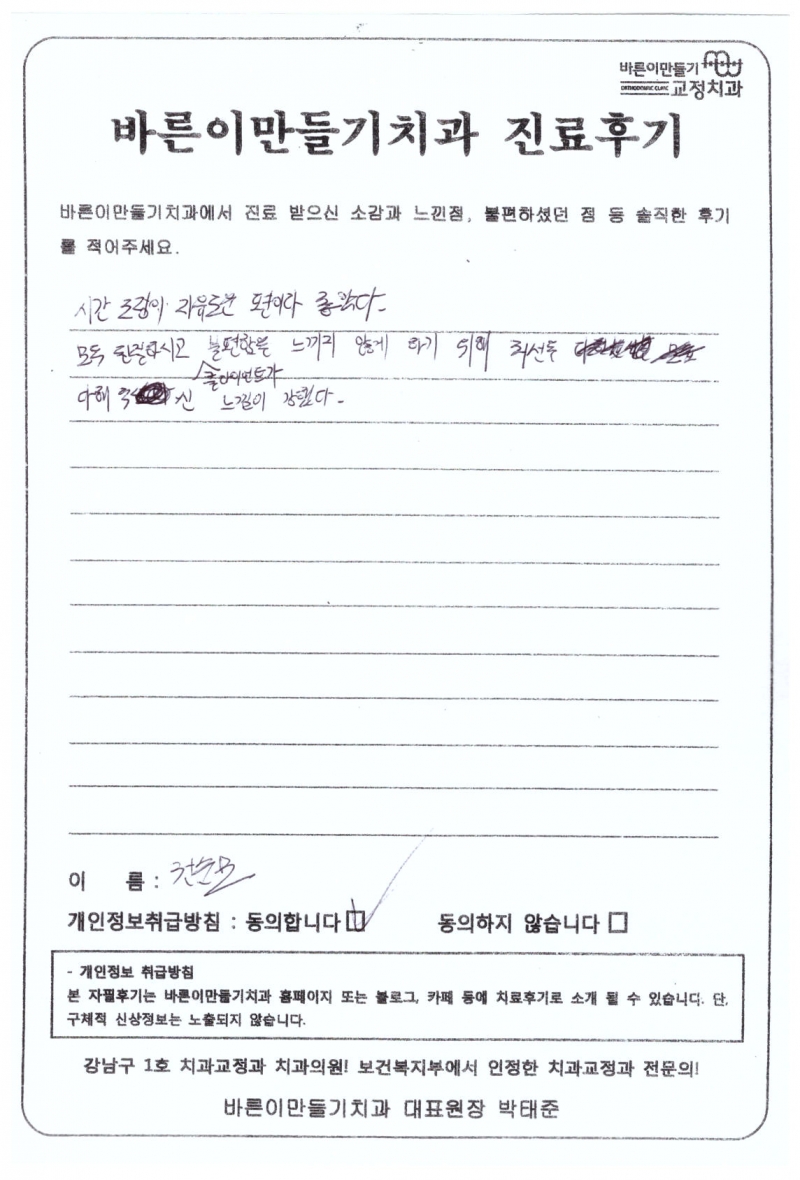 바른이만들기
ORTHODONTIC CLINIC 교정치과
바른이만들기치과 진료후기
바른이만들기치과에서 진료 받으신 소감과 느낀점, 불편하셨던 점 등 솔직한 후기
를 적어주세요.
시간 조정이 자유로운 편이라 좋았다.
모두 친절하시고 불편함을 느끼지 않게 하기 위해 최선을
클라이언트가
다해 주신 느낌이 강했다.
이 름 :
개인정보취급방침 : 동의합니다 동의하지 않습니다
- 개인정보 취급방침
본 자필후기는 바른이만들기치과 홈페이지 또는 블로그, 카페 등에 치료후기로 소개 될 수 있습니다. 단,
구체적 신상정보는 노출되지 않습니다.
강남구 1호 치과교정과 치과의원! 보건복지부에서 인정한 치과교정과 전문의!
바른이만들기치과 대표원장 박태준